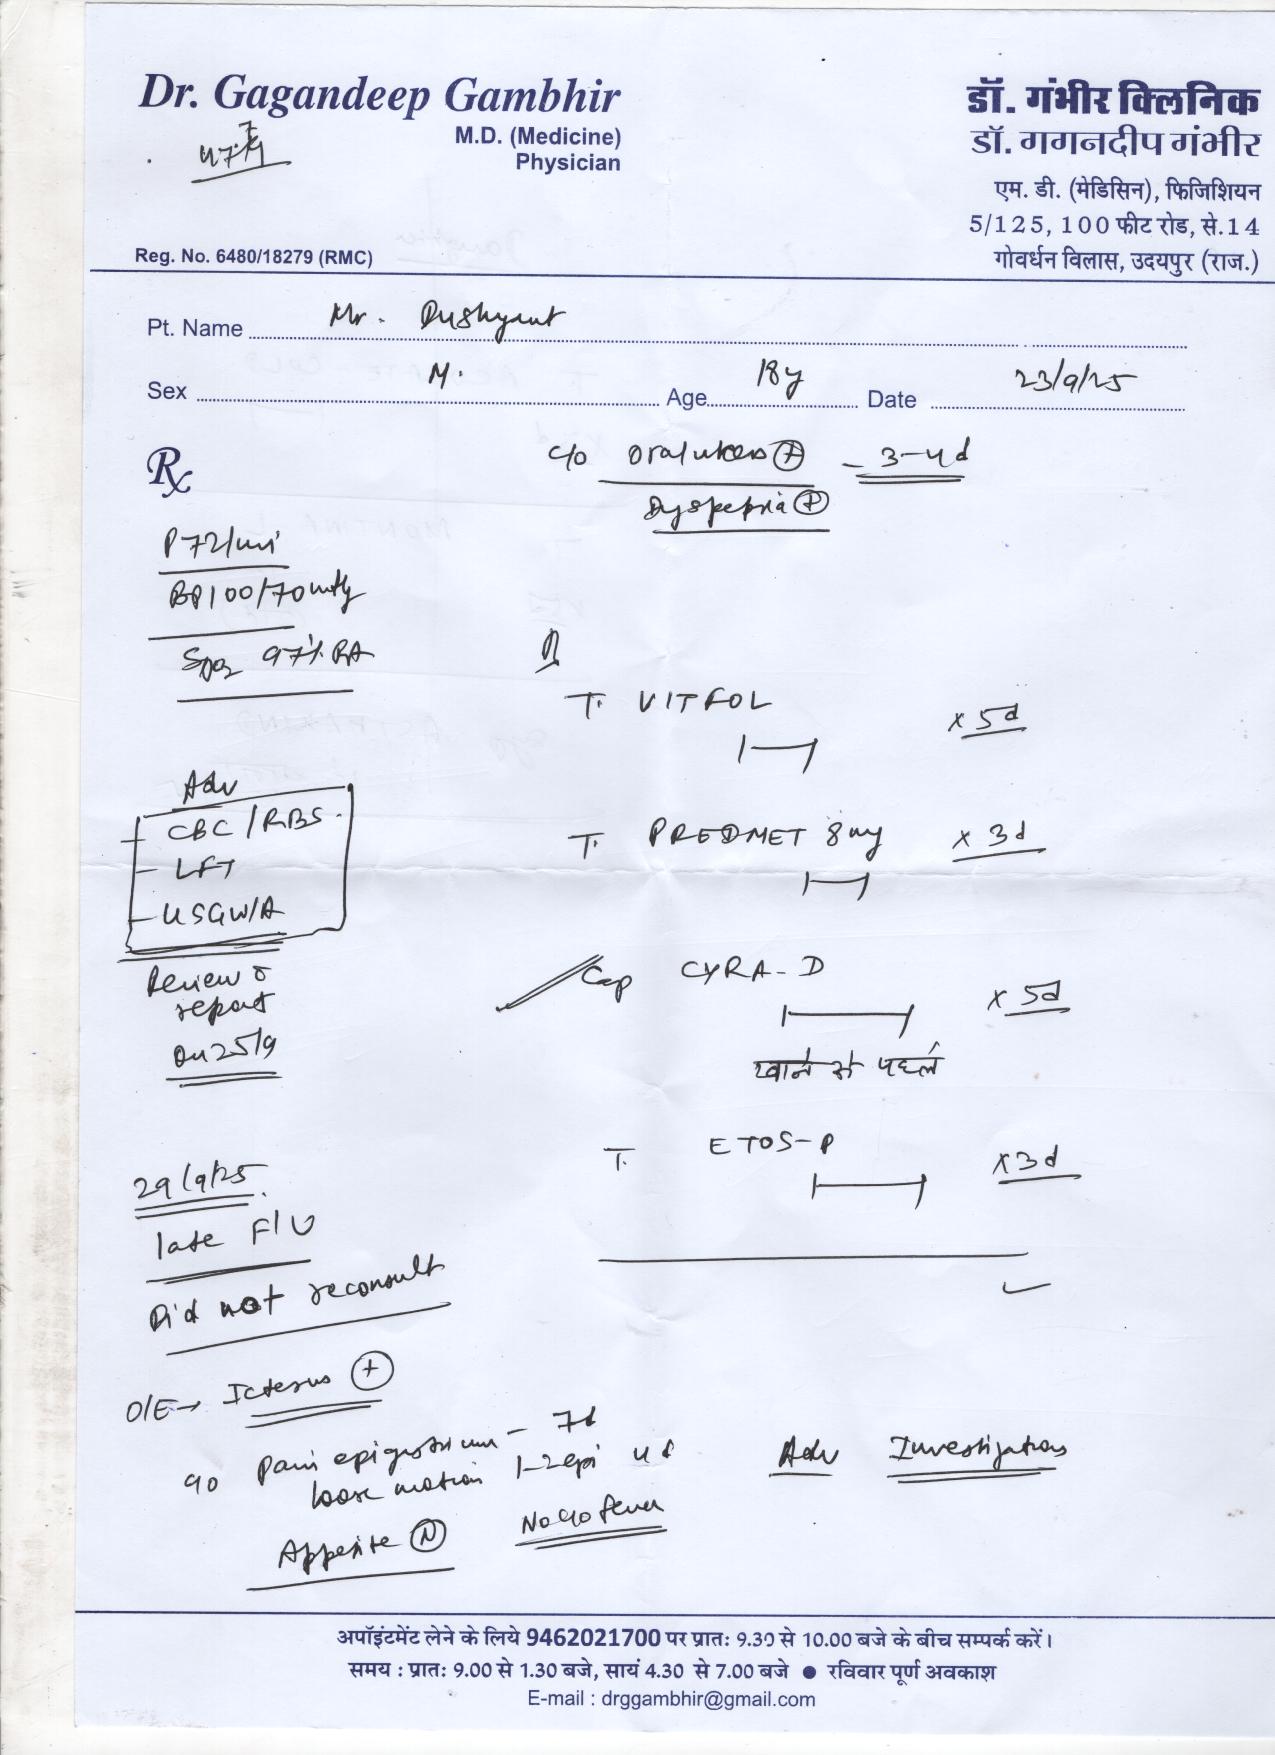 Dr. Gagandeep Gambhir
M.D. (Medicine)
Physician
Reg. No. 6480/18279 (RMC)
डॉ. गंभीर क्लिनिक
डॉ. गगनदीप गंभीर
एम. डी. (मेडिसिन), फिजिशियन
5/125, 100 फीट रोड, से.14
गोवर्धन विलास, उदयपुर (राज.)
Pt. Name Mr. Dushyant
Sex M. Age 18y Date 23/9/25
Rx
c/o oral ulcers + - 3-4d
Dyspepsia +
P 72/min
BP 100/70 mmHg
SpO2 97% RA
T. VITFOL x 5d
Adv
CBC / RBS.
- LFT
- USG W/A
T. PREDMET 8mg x 3d
Review c
report
on 25/9
Cap CYRA-D x 5d
खाने से पहले
T. ETOS-P x3d
29/9/25.
late F/U
Did not reconsult
O/E→ Icterus +
c/o Pain epigastrium - 7d
loose motion 1-2 epi 4d
Appetite N No c/o fever
Adv Investigations
अपॉइंटमेंट लेने के लिये 9462021700 पर प्रातः 9.30 से 10.00 बजे के बीच सम्पर्क करें।
समय : प्रातः 9.00 से 1.30 बजे, सायं 4.30 से 7.00 बजे ● रविवार पूर्ण अवकाश
E-mail : drggambhir@gmail.com